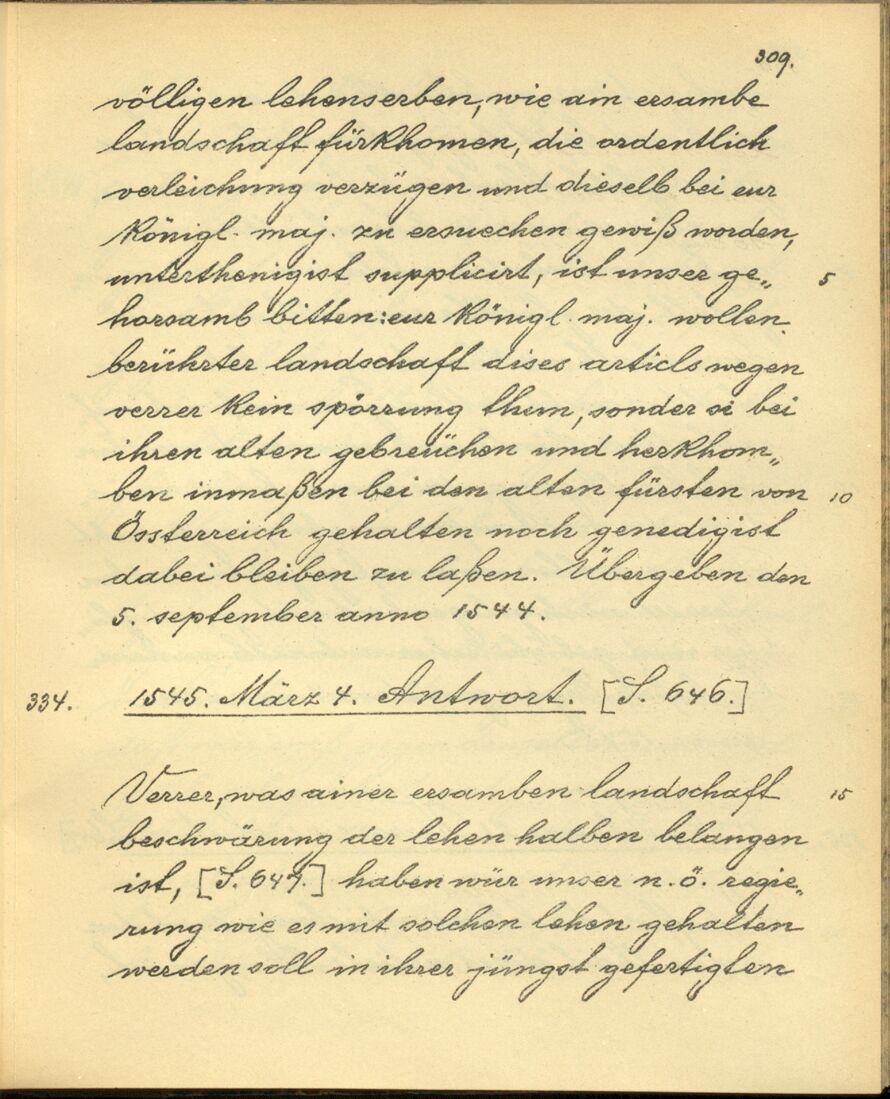 309.
völligen lehenserben, wie ain ersambe
landschaft fürkhomen, die ordentlich
verleichung verzügen und dieselb bei eur
königl. maj. zu ersuechen gewiß worden,
unterthenigist supplicirt, ist unser ge„ 5
horsamb bitten: eur königl. maj. wollen
berührter landschaft dises articls wegen
verrer kein spörrung them, sonder si bei
ihren alten gebreüchen und herkhom„
ben inmaßen bei den alten fürsten von 10
Össterreich gehalten noch genedigist
dabei bleiben zu laßen. Übergeben den
5. september anno 1544.
334. 1545. März 4. Antwort. [S. 646.]
Verrer, was ainer ersamben landschaft 15
beschwärung der lehen halben belangen
ist, [S. 647.] haben wür unser n. ö. regie„
rung wie es mit solchen lehen gehalten
werden soll in ihrer jüngst gefertigten